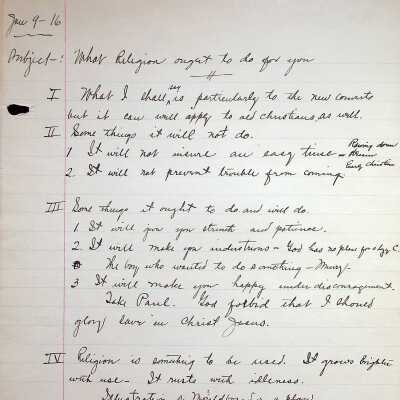 Jan 9-16
Subject-: What Religion ought to do for you
I What I shall say is particularly to the new converts
but it can will apply to old christians, as well.
II Some things it will not do.
1 It will not insure an easy time - Rowing down stream
Early Christians
2. It will not prevent trouble from coming
III Some things it ought to do and will do.
1 It will give you strength and patience.
2 It will make you industrious - God has no place for a lazy C.
The boy who wanted to do something -
3 It will make you happy under discouragement.
Take Paul. God forbid that I should
glory save in Christ Jesus.
IV Religion is something to be used. It grows brighter
with use - It rusts with idleness.
Illustration